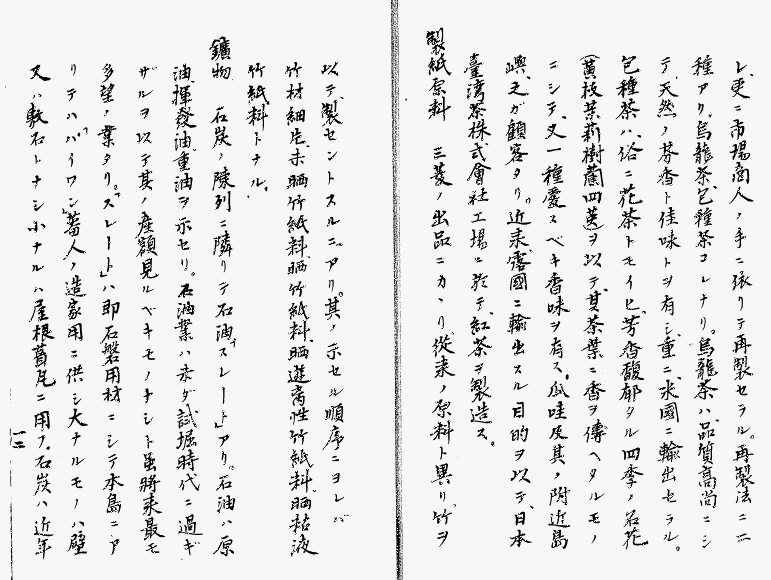 レ、更ニ市場商人ノ手ニ依リテ再製セラル。再製法ニ二
種アリ、烏龍茶、包種茶コレナリ。烏龍茶ハ、品質高尚ニシ
テ、天然ノ芬香ト佳味トヲ有シ、重ニ米國ニ輸出セラル。
包種茶ハ、俗ニ花茶トモイヒ、芳香馥郁タル四季ノ名花
(黄枝茉莉樹蘭四英)ヲ以テ、其茶葉ニ香ヲ傳ヘタルモノ
ニシテ、又一種愛スベキ香味ヲ有ス。瓜哇及其ノ附近島
嶼、之ガ顧客タリ。近来露國ニ輸出スル目的ヲ以テ、日本
臺湾茶株式會社工場ニ於テ、紅茶ヲ製造ス。
製紙原料 三菱ノ出品ニカヽリ、從来ノ原料ト異リ、竹ヲ
以テ、製セントスルニアリ。其ノ示セル順序ニヨレバ
竹材細片、未晒竹紙料、晒竹紙料、晒遊离性竹紙料、晒粘液
竹紙料トナル。
鑛物 石炭ノ陳列ニ隣リテ石油「スレート」アリ。石油ハ原
油、揮發油、重油ヲ示セリ。石油業ハ未ダ試堀時代ニ過ギ
ザルヲ以テ其ノ産額見ルベキモノナシト虽、將来最モ
多望ノ業タリ。「スレート」ハ即石磐用材ニシテ本島ニア
リテハ「パイワン」蕃人ノ造家用ニ供シ大ナルモノハ壁
又ハ敷石トナシ小ナルハ屋根葺瓦ニ用フ。石炭ハ近年
一二